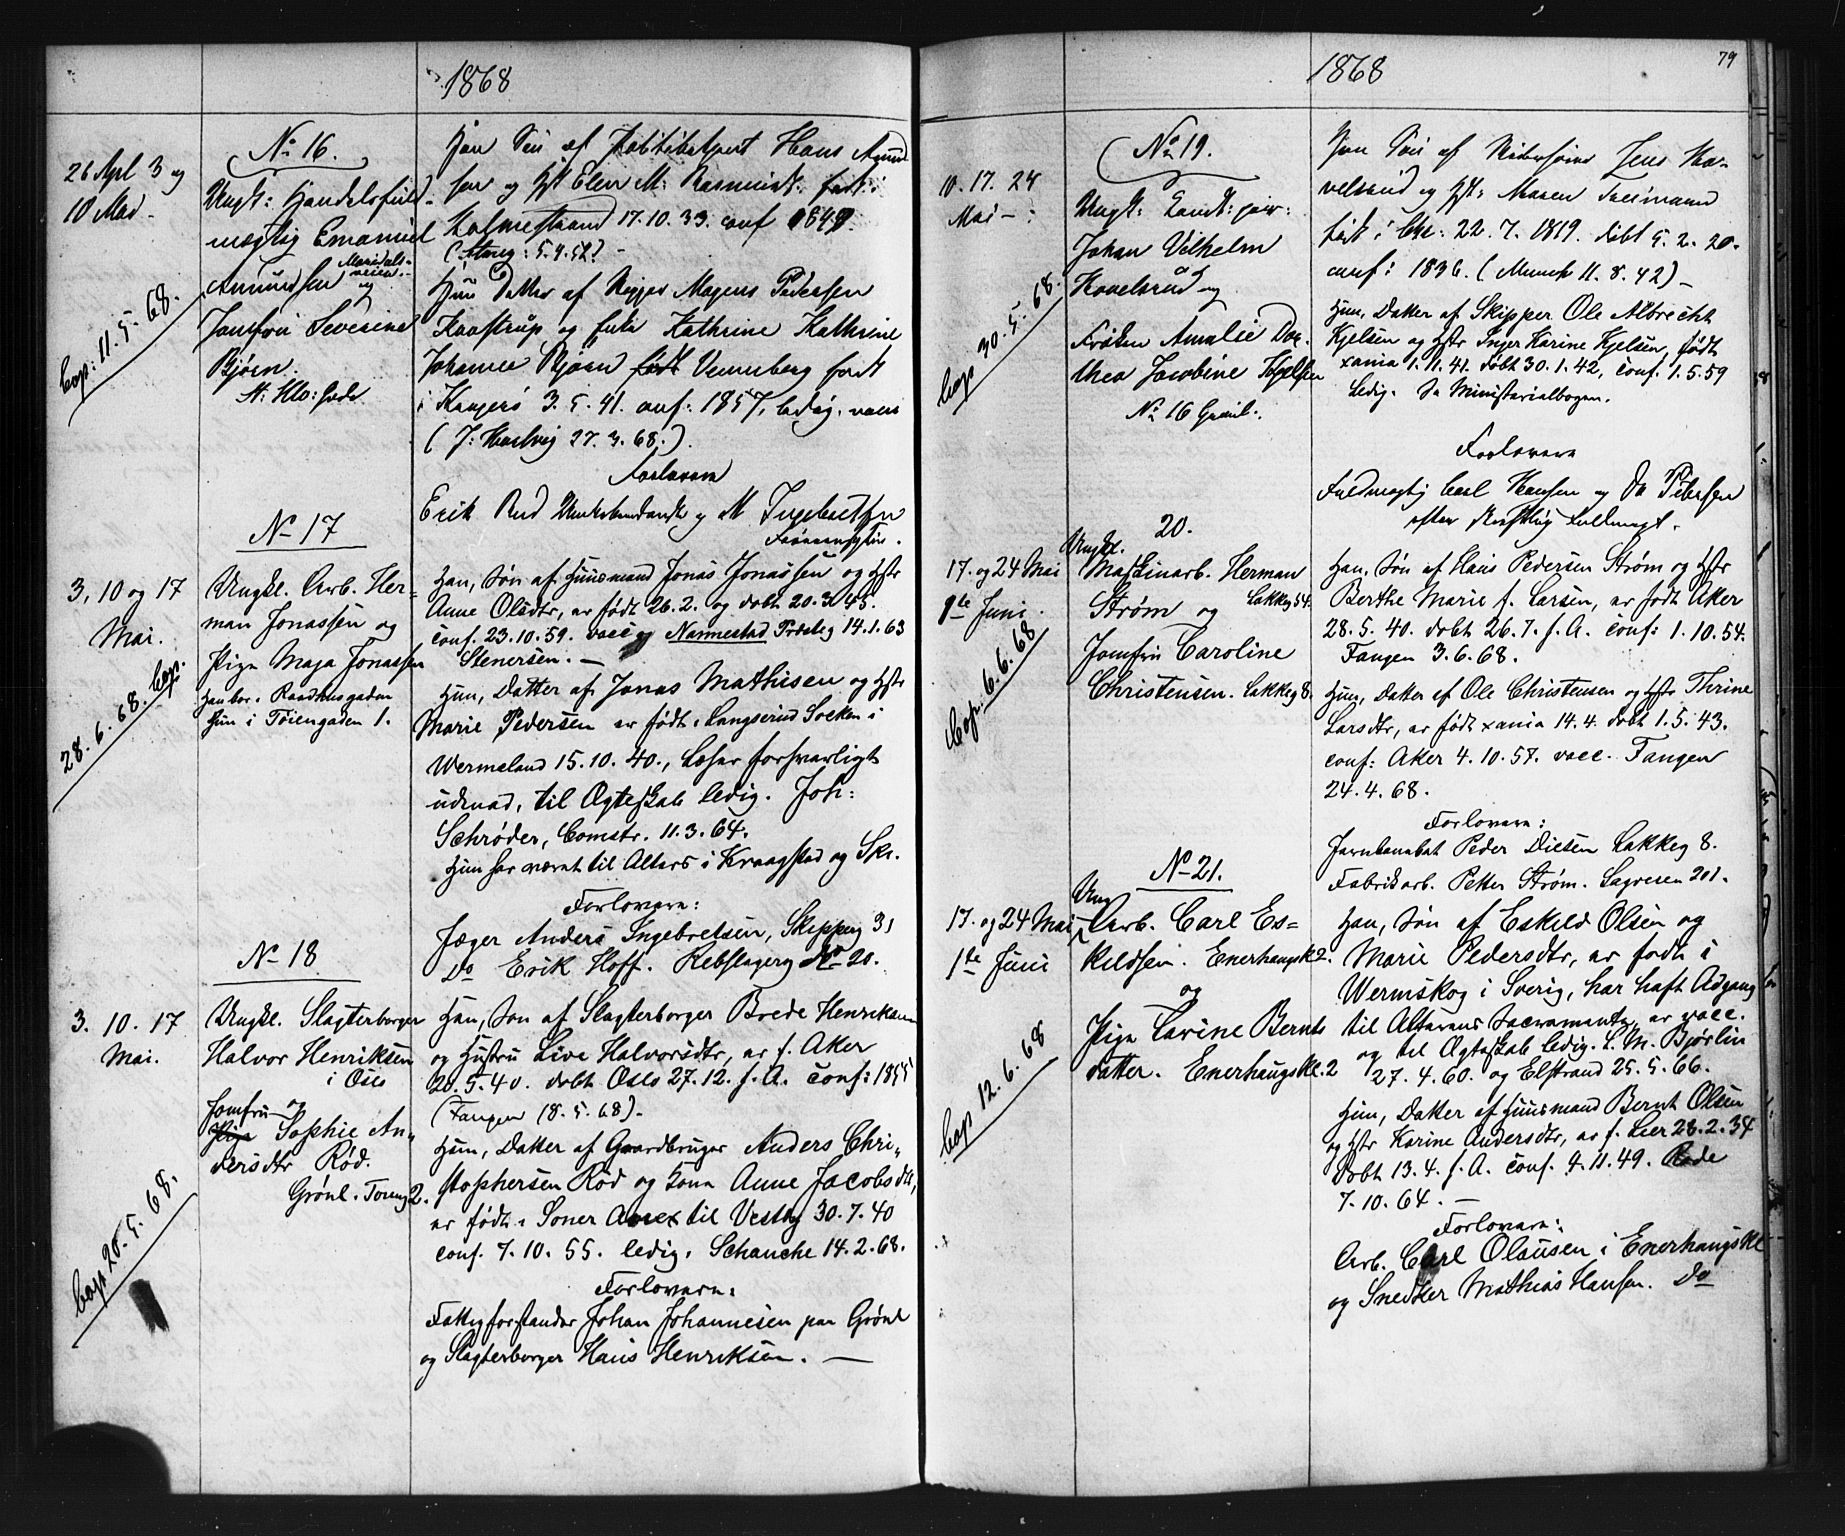 1868
26 Apl 3 og
10 Mai -
Cop: 11.5.68.
No 16.
Ungk: Handelsfuld-
mægtig Emanuel
Maridals-
veien.
Amundsen og
Jomfru Severine
Bjørn.
Han Søn af Hans Amund-
sen og H Elen M: Rasmusdt: født i
Holmestrand 17.10.33. conf 1849.
(Stang: 5.9.52) -
Hun Datter af Mogens Pedersen
Kaastrup og Enke Kathrine Kathrine
Johanne Bjørn født Wenneberg født
i Kragerø 3.5.41. conf: 1857, ledig. vacc
(J: 27.3.68.)
Forlovere
Erik Rud og M Ingebretsen
No 17
3, 10 og 17
Mai.
28.6.68. Cop.
Ungkl. Arb. Her-
man Jonassen og
Pige Maja Jonassen
Han bor i Raadhusgaden
Hun i Tøiengaden 1.
Han, Søn af Huusmand Jonas Jonassen og Hstr
Anne Olsdtr, er født 26.2. og døbt 20.3.45.
conf. 23.10.59. vacc og Nannestad Prsteg 14.1.63
Stenersen. -
Hun, Datter af Jonas Mathisen og Hstr
Marie Pedersen er født i Langserud Soeken i
Wermeland 15.10.40., Læser forsvarligt
udenad, til Ægteskab ledig. Joh:
Schrøder, Comstr. 11.3.64.
Hun har været til Alters i Kraagstad og Ski.
Forlovere:
Jæger Anders Ingebretsen, Skipperg 31
Do Erik Hoff. Rebslagerg No 20.
No 18
3. 10. 17
Mai.
Cop 20.5.68.
Ungkl. Slagterborger
Halvor Henriksen
i Oslo
og
Jomfru
Pige Sophie An-
dersdtr Rød.
Grønl. Torvg 2.
Han, Søn af Slagterborger Brede Henriksen
og Hustru Live Halvorsdtr, er f. Aker
20.5.40. døbt Oslo 27.12. f.A. Conf: 1855
(Fangen 18.5.68). -
Hun, Datter af Gaardbruger Anders Chri-
stophersen Rød og Kone Anne Jacobsdtr,
er født i Soner Anex til Vestby 30.7.40
conf. 7.10.55. ledig. Schanche 14.2.68.
Forlovere:
Fattigforstander Johan Johannesen paa Grønl
og Slagterborger Hans Henriksen. -
1868
79
10. 17. 24
Mai -
Cop 30.5.68.
No 19.
Ungk:
Johan Vilhelm
Havelsrud og
Frøken Amalie Dor-
thea Jacobine Kjelsen
No 16 Grønl:
Han Søn af Jens Ha-
velsrud og H: Maren
født i Chr: 22.7.1819. døbt 5.2.20.
conf: 1836. (Munch 11.8.42) -
Hun, Datter af Skipper Ole Albrecht
Kjelsen og Hstr Inger Karine Kjelsen, født
xania 1.11.41. døbt 30.1.42, conf. 1.5.59
ledig. Se Ministerialbogen.
Forlovere
Fuldmægtig Carl Hansen og Do Petersen
efter skriftlig Fuldmagt.
20.
17. og 24 Mai
1te Juni.
Cop. 6.6.68
Ungkl.
Maskinarb. Herman
Strøm og Lakkeg 54.
Jomfru Caroline
Christensen. Lakkeg 8.
Han, Søn af Hans Pedersen Strøm og Hstr
Berthe Marie f. Larsen, er født Aker
28.5.40. døbt 26.7. f.A. conf: 1.10.54.
Fangen 3.6.68.
Hun, Datter af Ole Christensen og Hstr Thrine
Larsdtr, er født xania 14.4. døbt 1.5.43.
conf: Aker 4.10.57. vacc. Fangen
24.4.68.
Forlovere:
Peder Diesen Lakkeg 8.
Fabrikarb. Petter Strøm. Sagveien 201.
No 21.
17. og 24 Mai
1te Juni
Cop 12.6.68
Ung
Arb. Carl Es-
kildsen. Enerhaugskl 2.
og
Pige Lavine Bernts
datter. Enerhaugskl. 2
Han, Søn af Eskild Olsen og
Marie Pedersdtr, er født i
Wermskog i Sverig, har haft Adgang
til Altarens Sacramente, er vacc.
og til Ægteskab ledig. L.M. Bjørlin
27.4.60. og Elfstrand 25.5.66.
Hun, Datter af Huusmand Bernt Olsen
og Hstr Karine Andersdtr, er f. Lier 28.2.34
Døbt 13.4. f.A. conf. 4.11.49. Rode
7.10.64. -
Forlovere:
Arb. Carl Olausen i Enerhaugskl
og Snedker Mathias Hansen. Do